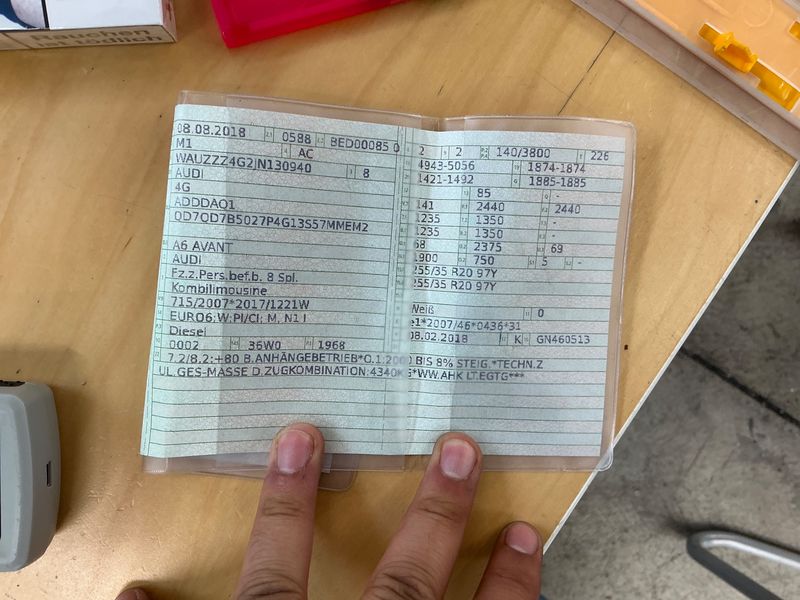 Rauchen
ist tödlich
08.08.2018 0588 BED00085 0
M1 AC
WAUZZZ4G2JN130940 8
AUDI
4G
ADDDAQ1
0D7QD7B5027P4G13S57MMEM2
A6 AVANT
AUDI
Fz.z.Pers.bef.b. 8 Spl.
Kombilimousine
715/2007*2017/1221W
EURO6;W;PI/CI; M, N1 I
Diesel
0002 36W0 1968
2 2 140/3800 226
4943-5056 1874-1874
1421-1492 1885-1885
85 -
141 2440 2440
1235 1350 -
1235 1350 -
68 2375 69
1900 750 5 -
255/35 R20 97Y
255/35 R20 97Y
Weiß 0
e1*2007/46*0436*31
08.02.2018 K GN460513
7.2/8.2:+80 B.ANHÄNGEBETRIEB*O.1:2000 BIS 8% STEIG.*TECHN.Z
UL.GES-MASSE D.ZUGKOMBINATION:4340KG*WW.AHK LT.EGTG***